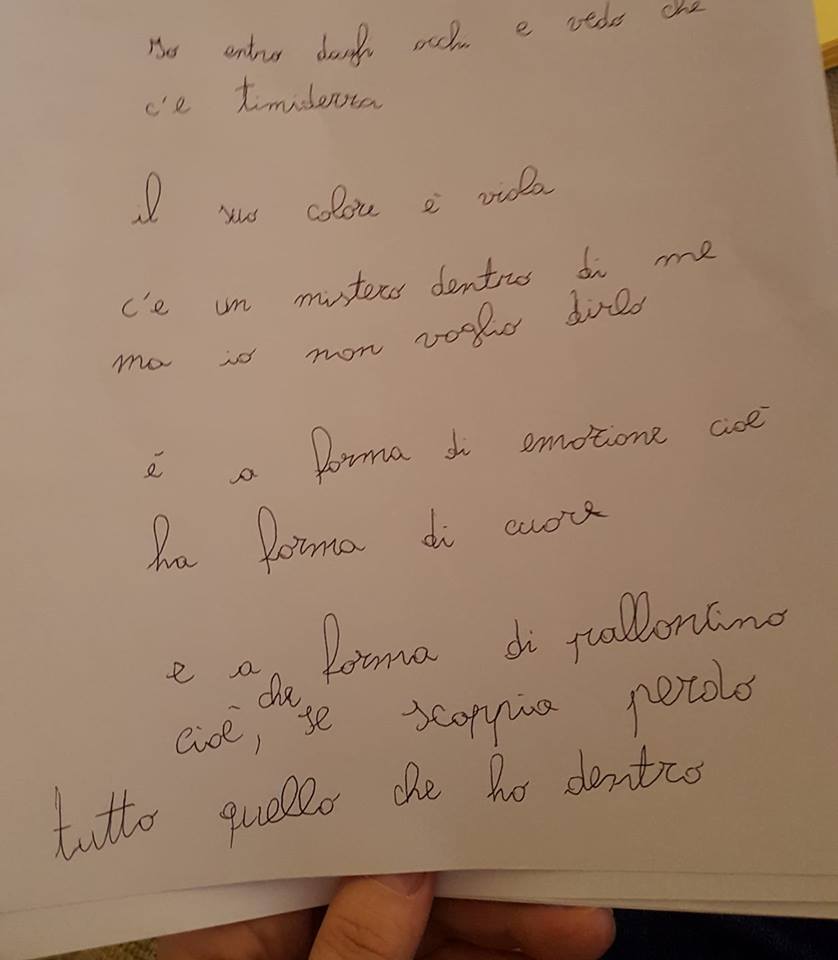 Io entro dagli occhi e vedo che
c'e timidezza
il suo colore è viola
c'e un mistero dentro di me
ma io non voglio dirlo
è a forma di emozione cioè
ha forma di cuore
e a forma di pallontino
cioè, che se scoppia perdo
tutto quello che ho dentro